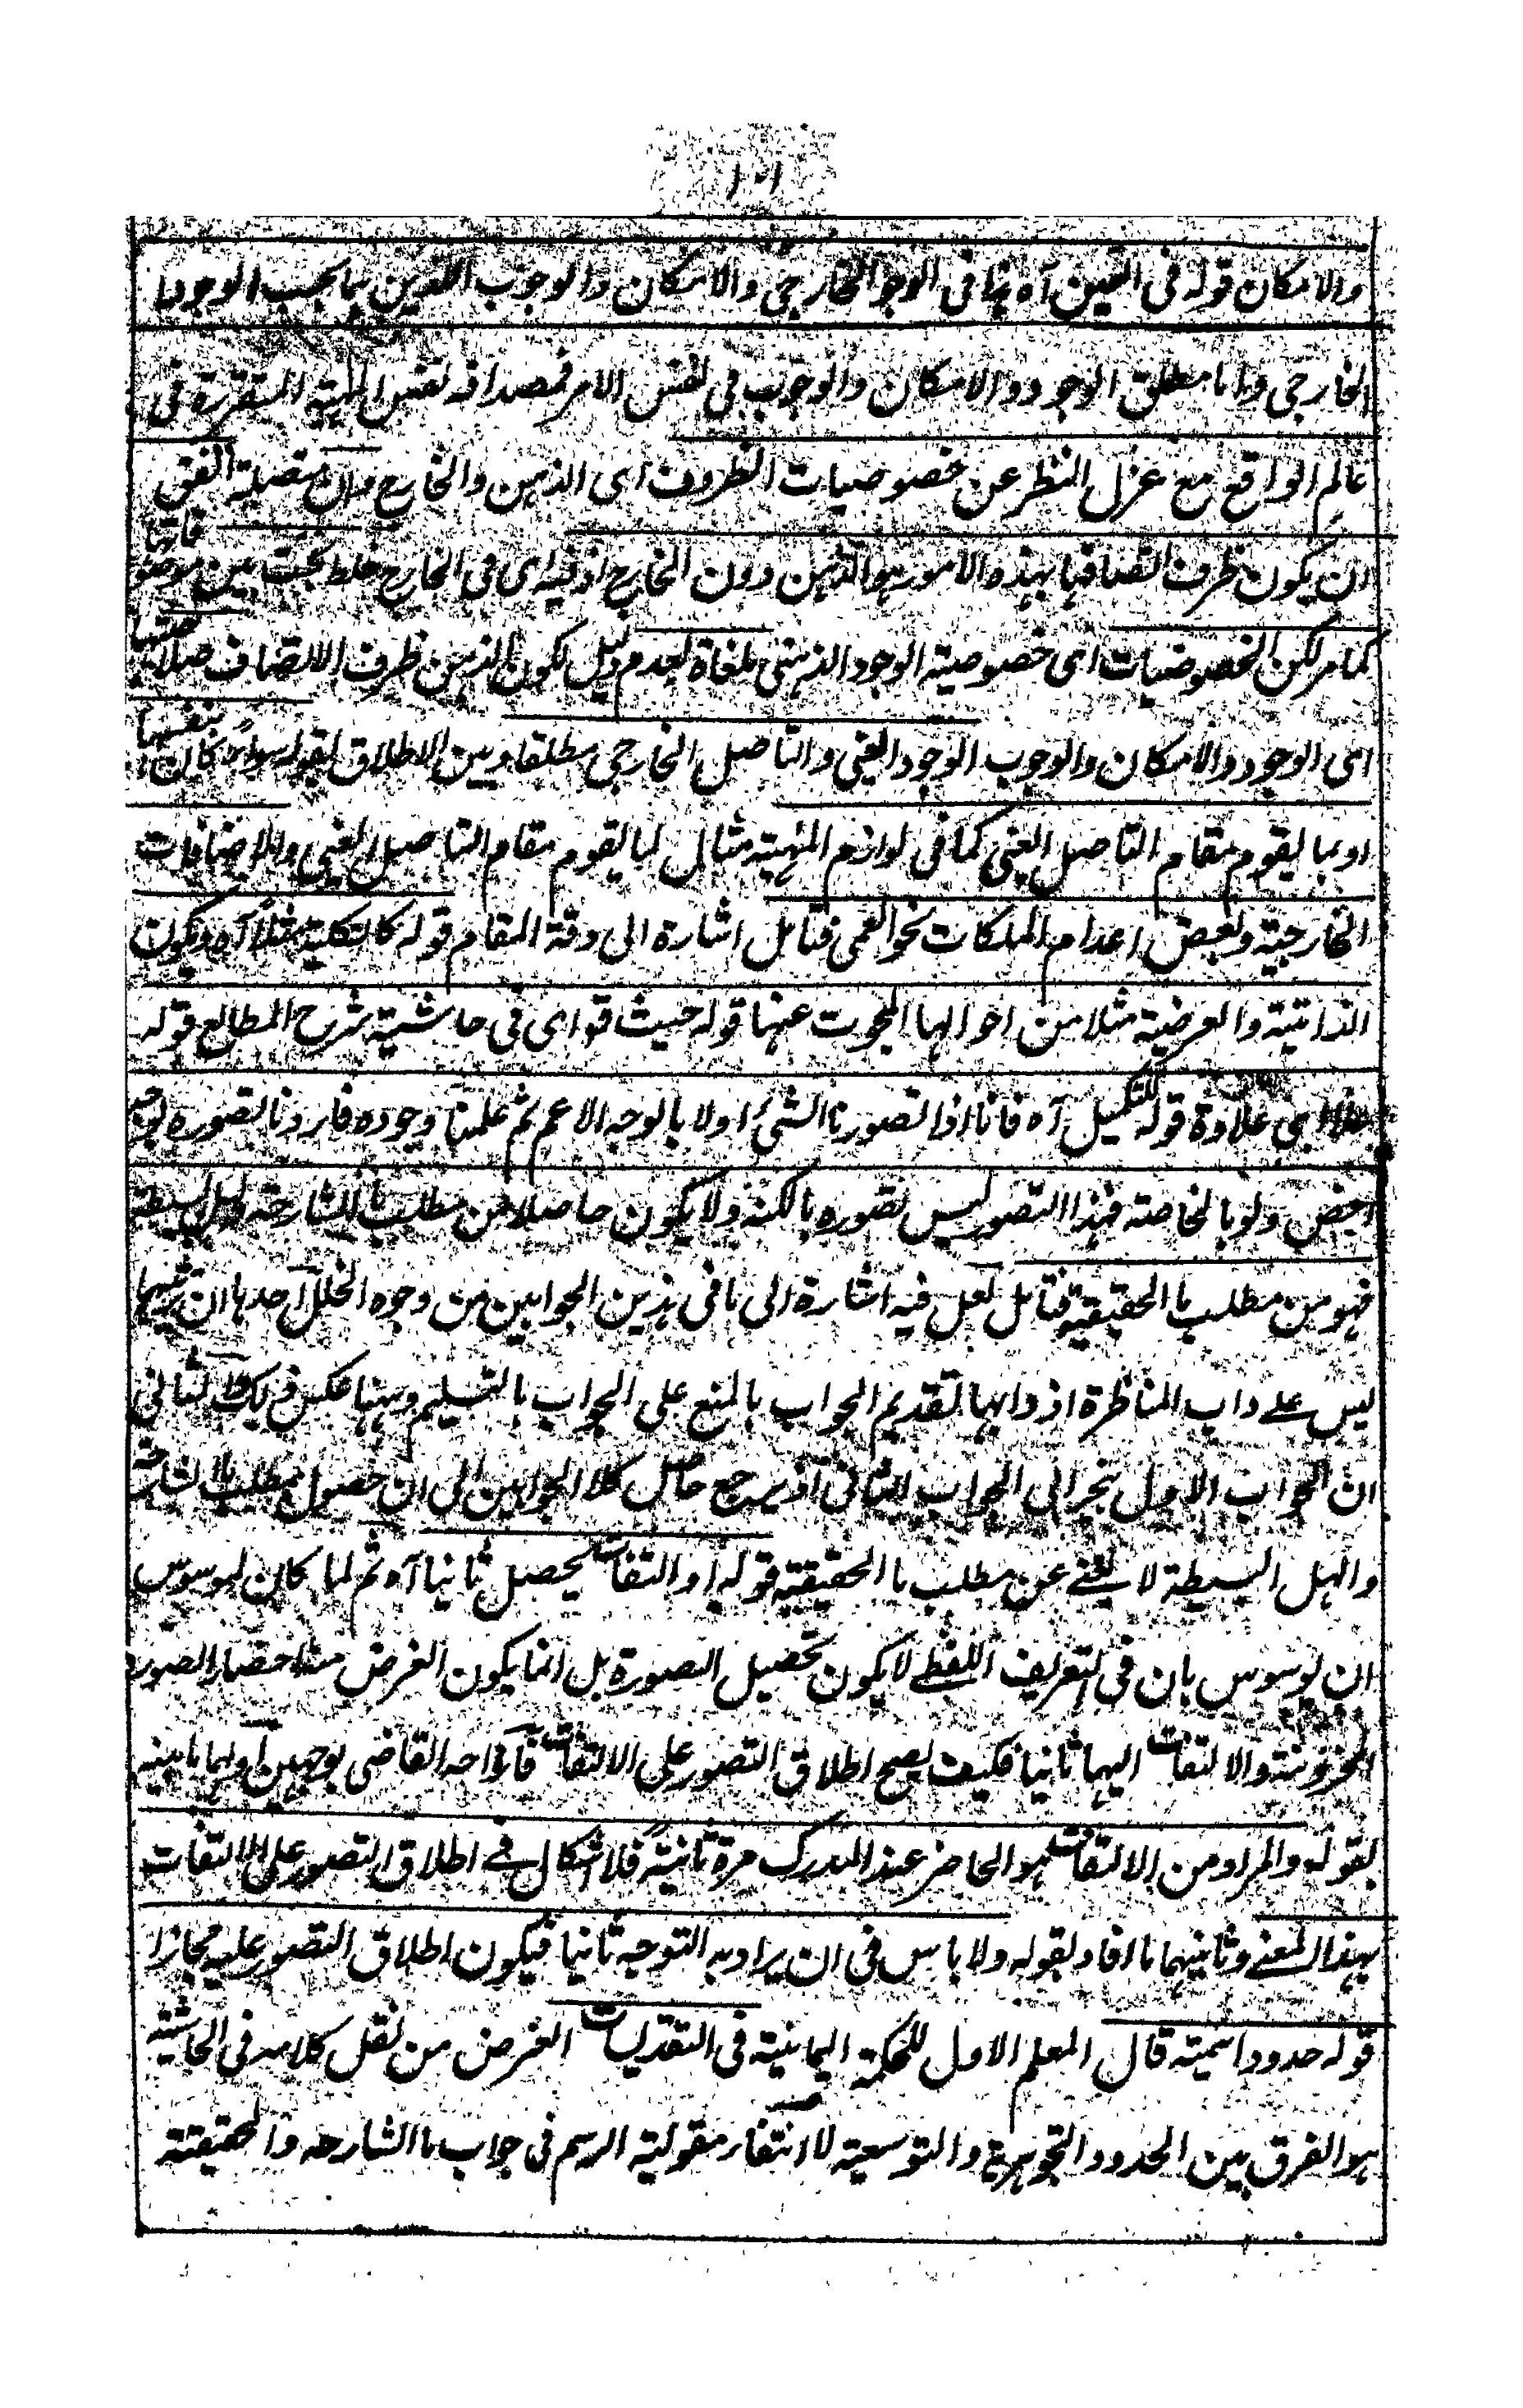 ١٠١
والامكان قوله فى التعين آه كما فى الوجو الخارجى والامكان والوجوب اللذين بما بحسب الوجود
الخارجى واما مطلق الوجود والامكان والوجوب فى نفس الامر فمصداقه نفس المهية المتقررة فى
عالم الواقع مع عزل النظر عن خصوصيات الظروف اى الذهن والخارج وان اتفق
ان يكون ظرف اتصافها بهذه الامور هو الذهن دون الخارج اذ فيه اى فى الخارج خلط بحت بين
كما مر لكن الخصوصيات اى خصوصية الوجود الذهنى ملغاة لعدم دليل لكون الذهن ظرف الاتصاف
اى الوجود والامكان والوجوب الوجود العينى والتاصل الخارجى مطلقا وبين الاطلاق بقوله سواء كان بنفسها
او بما يقوم مقام التاصل العينى كما فى لوازم المهية مثال لما يقوم مقام التاصل العينى والاضافات
الخارجية وبعض اعدام الملكات نحو العمى فتامل اشارة الى دقة المقام قوله كالكلية مثلا آه ويكون
الذاتية والعرضية مثلا من احوالها المبحوث عنها قوله حيث قو اى فى حاشية شرح المطالع قوله
هذا اى علاوة قوله للتكميل آه فانا اذا تصورنا الشئ اولا بالوجه الاعم ثم علمنا وجوده فاردنا تصوره بوجه
اخص ولو بالخاصة فهذا التصور ليس تصوره بالكنه ولا يكون حاصلا من مطلب ما الشارحة وهل البسيطة
فهو من مطلب ما الحقيقية فتامل لعل فيه اشارة الى ما فى هذين الجوابين من وجوه الخلل احدها ان ترتيبهما
ليس على داب المناظرة اذ دابها تقديم الجواب بالمنع على الجواب بالتسليم وههنا عكس ذلك الثانى
ان الجواب الاول ينجر الى الجواب الثانى اذ يرجع حاصل كلا الجوابين الى ان حصول مطلب ما الشارحة
والهل البسيطة لا يغنى عن مطلب ما الحقيقية قوله او التفات يحصل ثانيا آه ثم لما كان لموسوس
ان يوسوس بان فى التعريف اللفظى لا يكون تحصيل الصورة بل انما يكون الغرض منه احضار الصورة
المخزونة والالتفات اليها ثانيا فكيف يصح اطلاق التصور على الالتفات فازاحه القاضى بوجهين اولهما ما بينه
بقوله والمراد من الالتفات هو الحاضر عند المدرك مرة ثانية فلا اشكال فى اطلاق التصور على الالتفات
بهذا المعنى وثانيهما ما افاد بقوله ولا باس فى ان يراد به التوجه ثانيا فيكون اطلاق التصور عليه مجازا
قوله حدودا سمية قال المعلم الاول للحكمة اليمانية فى التقديسات الغرض من نقل كلامه فى الحاشية
هو الفرق بين الحدود الجوهرية والتوسعية لا انتفاء مقولية الرسم فى جواب ما الشارحه والحقيقية